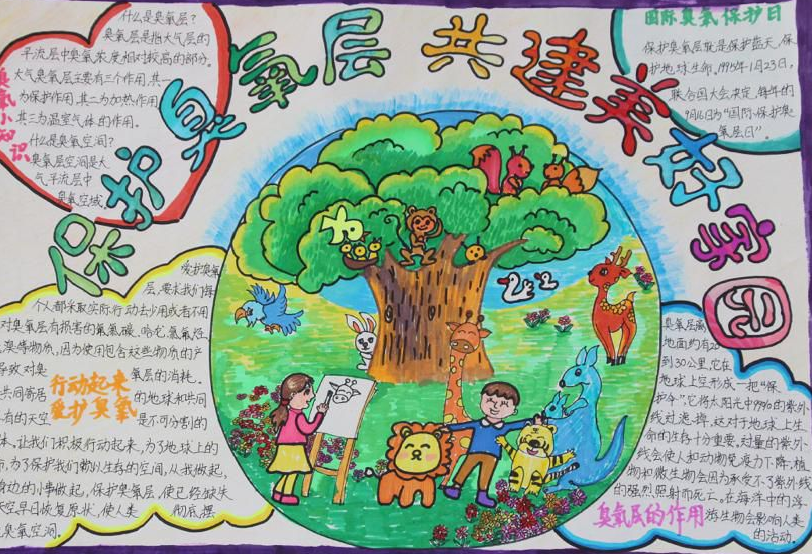 保护臭氧层 共建美好家园
臭氧小知识
什么是臭氧层?
臭氧层是指大气层的
平流层中臭氧浓度相对较高的部分,
大气臭氧层主要有三个作用,其一
为保护作用,其二为加热作用
其三为温室气体的作用。
什么是臭氧空洞?
臭氧层空洞是大
气平流层中
臭氧空域。
国际臭氧保护日
保护臭氧层就是保护蓝天,保
护地球生命,1995年1月23日,
联合国大会决定,每年的
9月16日为“国际保护臭
氧层日”。
爱护臭氧
层,要求我们每
个人都采取实际行动去少用或者不用
对臭氧层有损害的氟氯碳、哈龙、氢氟烃、
溴等物质,因为使用包含这些物质的产
导致对臭
氧层的消耗。
行动起来
爱护臭氧
共同寄居
的地球和共同
有的天空
是不可分割的
体,让我们积极行动起来,为了地球上的
命,为了保护我们赖以生存的空间,从我做起,
身边的小事做起,保护臭氧层,使已经缺失
天空早日恢复原状,使人类
彻底摆
臭氧空洞。
臭氧层离
地面约有20
到30公里,它在
地球上空形成一把“保
护伞”,它将太阳光中99%的紫外
线过滤掉,这对于地球上生
命的生存十分重要,过量的紫外
线会使人和动物免疫力下降,植
物和微生物会因为承受不了紫外线
的强烈照射而死亡。在海洋中的浮
游生物会影响人类
的活动。
臭氧层的作用